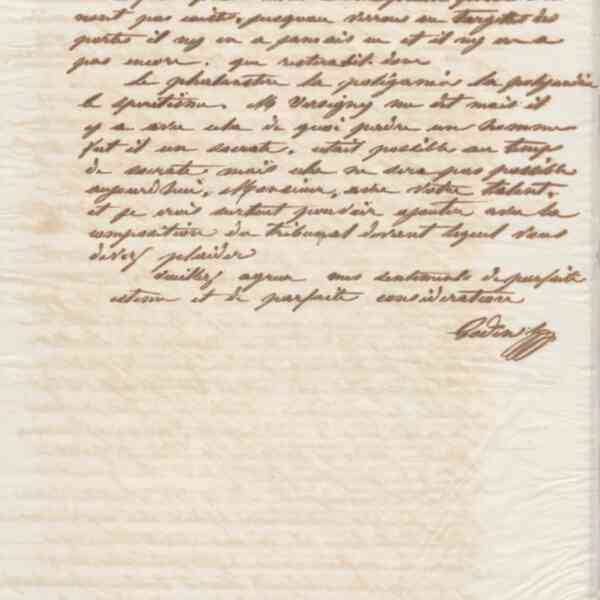 nont pas cuité, jusquau verrou au targettes des
portes il ny en a jamais eu et il ny en a
pas encore. que restéradit-donc
le phalanstère la poligamie la polyandrie
le spiritisme. M Versigny me dit mais il
y a avec cela de quoi pendre un homme
fut il un socrate. cétait possible au temps
de socrate mais cela ne sera pas possible
aujourdhui, Monsieur, avec votre talent.
et je crois surtout pouvoir ajouter avec la
composition du tribunal devant lequel vous
devez plaider
veuillez agreer mes sentiments de parfaite
estime et de parfaite consideration
Godin